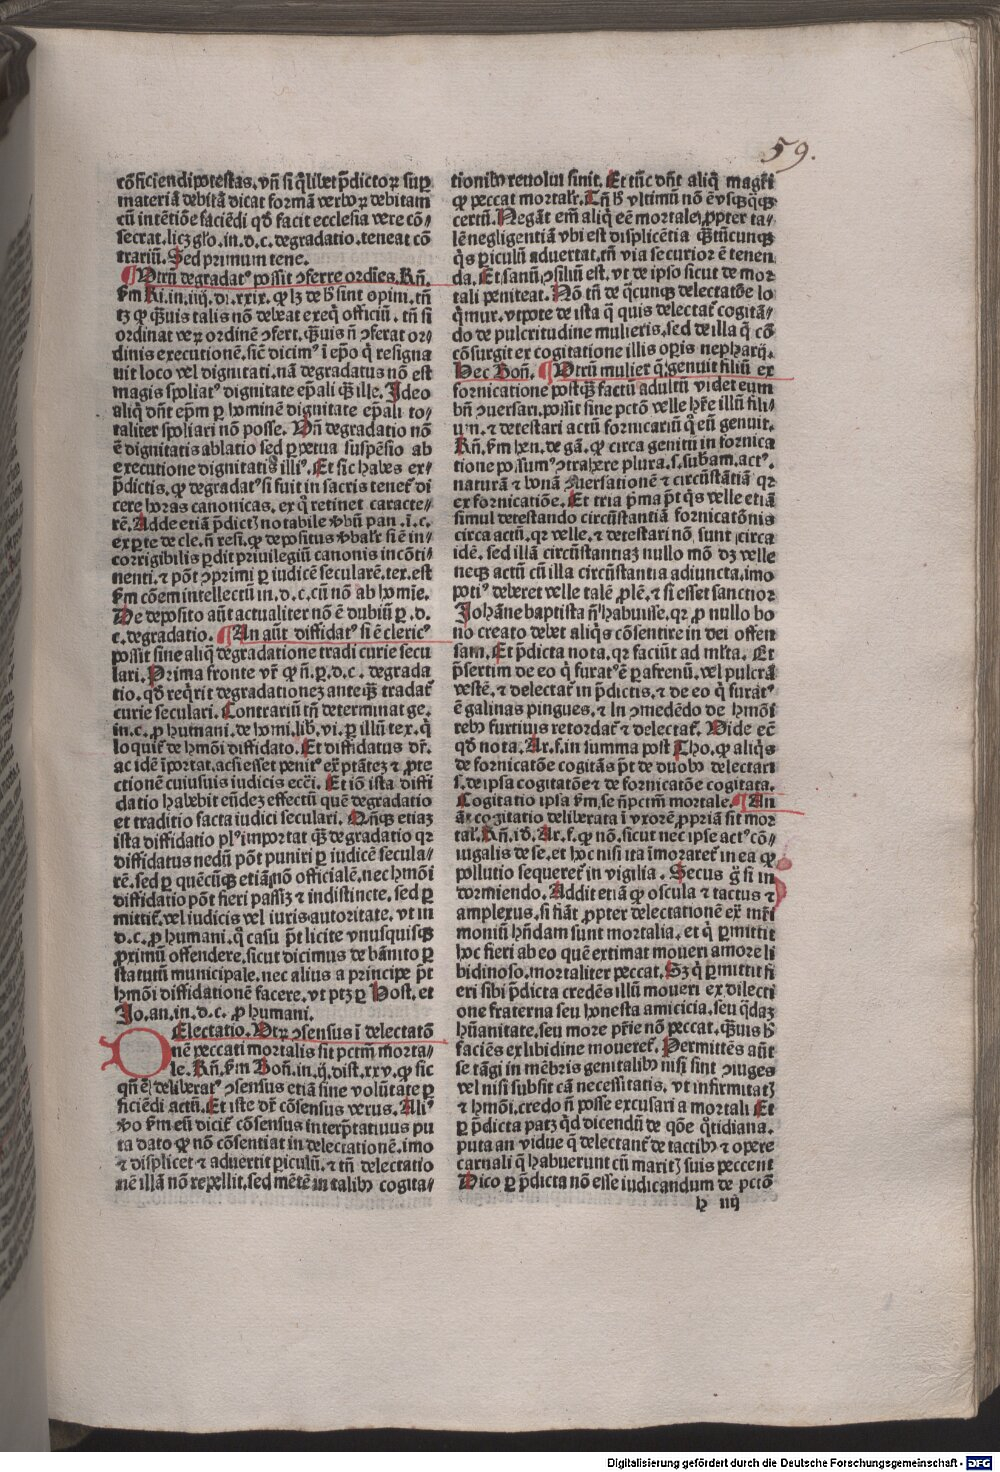 59.
cōficiendi potestas. vñ si q̄libet p̄dictoꝝ sup
materiā debitā dicat formā verboꝝ debitam
cū intētiōe faciēdi qd̄ facit ecclesia vere cō⸗
secrat. licꝫ glo. in. d. c. degradatio. teneat cō
trariū. Sed primum tene.
¶ Vtrū degradatꝰ possit ꝯferre ordīes. Rñ.
ẜm Ri. in. iiij. di. xxix. ꝙ lꝫ de h̄ sint opini. tñ
tꝫ ꝙ q̄uis talis nō debeat exeq̄ officiū. tñ si
ordinat veꝝ ordinē ꝯfert. q̄uis ñ ꝯferat or⸗
dinis executionē. sic̄ dicimꝰ ī ep̄o q̄ resigna
uit loco vel dignitati. nā degradatus nō est
magis spoliatꝰ dignitate ep̄ali q̄ꝫ ille. Ideo
aliq̄ dn̄t ep̄m ꝑ hominē dignitate ep̄ali to⸗
taliter spoliari nō posse. Vn̄ degradatio nō
ē dignitatis ablatio sed ꝑpetua suspēsio ab
executione dignitatis illiꝰ. Et sic habes ex
p̄dictis. ꝙ degradatꝰ si fuit in sacris tenet̄ di
cere horas canonicas. ex q̄ retinet caracte⸗
rē. Adde etiā p̄dictꝭ notabile vbū pan. ī. c.
ex ꝑte de cle. ñ resi. ꝙ depositus vbalr̄ si ē in⸗
corrigibilis ꝑdit priuilegiū canonis incōti⸗
nenti. ⁊ pōt ꝯprimi ꝑ iudicē secularē. tex. est
ẜm cōem intellectū in. d. c. cū nō ab homīe.
De deposito aūt actualiter nō ē dubiū ꝑ. d.
c. degradatio. ¶ An aūt diffidatꝰ si ē clericꝰ
possit sine aliq̄ degradatione tradi curie secu
lari. Prima fronte vr̄ ꝙ ñ. ꝑ. d. c. degrada
tio. qd̄ req̄rit degradationeꝫ anteq̄ꝫ tradat̄
curie seculari. Contrariū tñ determinat ge.
in. c. ꝓ humani. de homi. lib. vi. ꝑ illū tex. q̄
loquit̄ de hmōi diffidato. Et diffidatus dr̄.
ac idē īportat. acsi esset penitꝰ ex̄ ptātez ⁊ ꝓte
ctionē cuiusuis iudicis ecc̄i. Et iō ista diffi
datio habebit eūdez effectū quē degradatio
et traditio facta iudici seculari. Vñqꝫ etiaꝫ
ista diffidatio plꝰ importat q̄ꝫ degradatio qꝛ
diffidatus nedū pōt puniri ꝑ iudicē secula⸗
rē. sed ꝑ quēcūqꝫ etiā nō officialē. nec hmōi
diffidatio pōt fieri passiꝫ ⁊ indistincte. sed ꝑ
mittit̄. vel iudicis vel iuris autoritate. vt in
d. c. ꝓ humani. q̄ casu p̄t licite vnusquisqꝫ
ꝓximū offendere. sicut dicimus de bānito ꝑ
statutū municipale. nec alius a principe p̄t
hmōi diffidationē facere. vt ptꝫ ꝑ Host. et
Io. an. in. d. c. ꝓ humani.
DElectatio. Vtꝝ ꝯsensus ī delectatō
nē peccati mortalis sit pctm̄ morta⸗
le. Rñ. ẜm Boñ. in. ij. dist. xxv. ꝙ sic
qñ ē deliberatꝰ ꝯsensus etiā sine volūtate ꝑ
ficiēdi actū. Et iste dr̄ cōsensus verus. Aliꝰ
vo ẜm eū dicit̄ cōsensus interp̄tatiuus pu
ta dato ꝙ nō cōsentiat in delectationē. imo
⁊ displicet ⁊ aduertit ꝑiculū. ⁊ tñ delectatio
nē illā nō repellit. sed mētē in talibꝰ cogita⸗
tionibꝰ reuolui sinit. Et tūc dn̄t aliq̄ magr̄i
ꝙ peccat mortalr̄. Tñ h̄ vltimū nō ē vsqꝫq̄qꝫ
certū. Negāt em̄ aliq̄ eē mortale ꝓpter ta⸗
lē negligentiā vbi est displicētia q̄ꝫtūcunqꝫ
q̄s ꝑiculū aduertat. tñ via securior ē tenen
da. Et sanū ꝯsiliū est. vt de ipso sicut de mor
tali peniteat. Nō tñ de q̄cunqꝫ delectatōe lo
q̄mur. vtpote de ista q̄ quis delectat̄ cogitā⸗
do de pulcritudine mulieris. sed de illa q̄ cō
cōsurgit ex cogitatione illis oꝑis nepharij.
Hec Boñ. ¶ Vtrū mulier q̄ genuit filiū ex
fornicatione postq̄ꝫ factū adultū videt eum
bn̄ ꝯuersari. possit sine pctō velle hr̄e illū fili⸗
um. ⁊ detestari actū fornicariū q̄ eū genuit.
Rñ. ẜm hen. de gā. ꝙ circa genitū in fornica
tione possumꝰ ꝯtrahere plura. s. subam. actꝰ.
naturā ⁊ bonā ꝯuersationē ⁊ circūstātiā qꝛ
ex fornicatiōe. Et tria p̄ma p̄t q̄s velle etiā
simul detestando circūstantiā fornicatōnis
circa actū. qꝛ velle. ⁊ detestari nō sunt circa
idē. sed illā circūstantiaꝫ nullo mō dꝫ velle
neqꝫ actū cū illa circūstantia adiuncta. imo
potiꝰ deberet velle talē ꝓlē. ⁊ si esset sanctior
Iohāne baptista ñ habuisse. qꝛ ꝓ nullo bo
no creato debet aliq̄s cōsentire in dei offen
sam. Et p̄dicta nota. qꝛ faciūt ad ml̄ta. Et
p̄sertim de eo q̄ furatꝰ ē palafrenū. vel pulcrā
vestē. ⁊ delectat̄ in p̄dictis. ⁊ de eo q̄ furatꝰ
ē galinas pingues. ⁊ in ꝯmedēdo de hmōi
rebꝰ furtiuis retordat̄ ⁊ delectat̄. Vide eē
qd̄ nota. Ar. f. in summa post Tho. ꝙ aliq̄s
de fornicatōe cogitās p̄t de duobꝰ delectari
s. de ipsa cogitatōe ⁊ de fornicatōe cogitata.
Cogitatio ipsa ẜm. se ñ pctm̄ mortale. ¶ An
āt cogitatio deliberata ī vxorē ꝓpriā sit mor
tał. Rñ. id. Ar. f. ꝙ nō. sicut nec ipse actꝰ cō⸗
iugalis de se. et hoc nisi ita īmoraret̄ in ea ꝙ
pollutio sequeret̄ in vigilia. Secus ḡ si in
dormiendo. Addit etiā ꝙ oscula ⁊ tactus ⁊
amplexus. si fiāt ꝓpter delectationē ex̄ mr̄i
moniū hñdam sunt mortalia. et q̄ ꝑmittit
hoc fieri ab eo quē extimat moueri amore li
bidinoso. mortaliter peccat. Sꝫ q̄ ꝑmittit fi
eri sibi p̄dicta credēs illū moueri ex dilecti
one fraterna seu honesta amicicia. seu q̄daꝫ
hūanitate. seu more pr̄ie nō peccat. q̄uis h̄
faciēs ex libidine moueret̄. Permittēs aūt
se tāgi in mēbris genitalibꝰ nisi sint ꝯiuges
vel nisi subsit cā necessitatis. vt infirmitatꝭ
⁊ hmōi. credo ñ posse excusari a mortali Et
ꝑ p̄dicta patꝫ qd̄ dicendū de qōe q̄tidiana.
puta an vidue q̄ delectant̄ de tactibꝰ ⁊ opere
carnali q̄ habuerunt cū maritꝭ suis peccent
Dico ꝑ p̄dicta nō esse iudicandum de pctō
h iiij
Digitalisierung gefördert durch die Deutsche Forschungsgemeinschaft - DFG